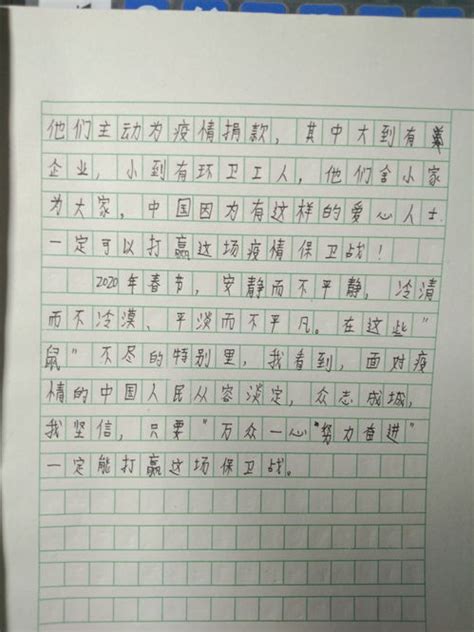 他们主动为疫情捐款，其中大到有
企业，小到有环卫工人，他们舍小家
为大家。中国因为有这样的爱心人士
一定可以打赢这场疫情保卫战！
2020年春节，安静而不平静，冷清
而不冷漠、平淡而不平凡。在这些“
鼠”不尽的特别里，我看到，面对疫
情的中国人民从容淡定，众志成城，
我坚信，只要“万众一心”努力奋进”
一定能打赢这场保卫战。